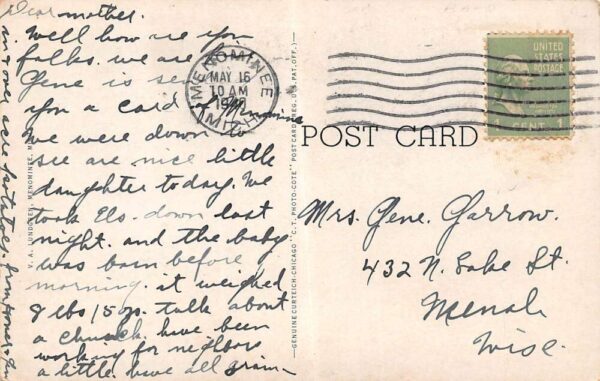 Dear mother.
Well how are you
folks. we are
Gene is sen
you a card of Menomine
We were down to
see are nice little
daughter today. We
took Els. down last
night. and the baby
was born before
morning. it weighed
8 lbs 15 ozs. talk about
a chunck. have been
working for neighbors
a little. have all grain
in & over acre potatoes. from
MENOMINEE
MAY 16
10 AM
MICH.
UNITED
STATES
POSTAGE
1 CENT 1
POST CARD
Mrs. Gene. Garrow.
432 N. Lake St.
Menasha
Wisc.
GENUINE CURTEICH-CHICAGO "C.T. PHOTO-COTE" POST CARD (REG. U.S. PAT. OFF.)
V. A. LUNDGREN, MENOMINEE,